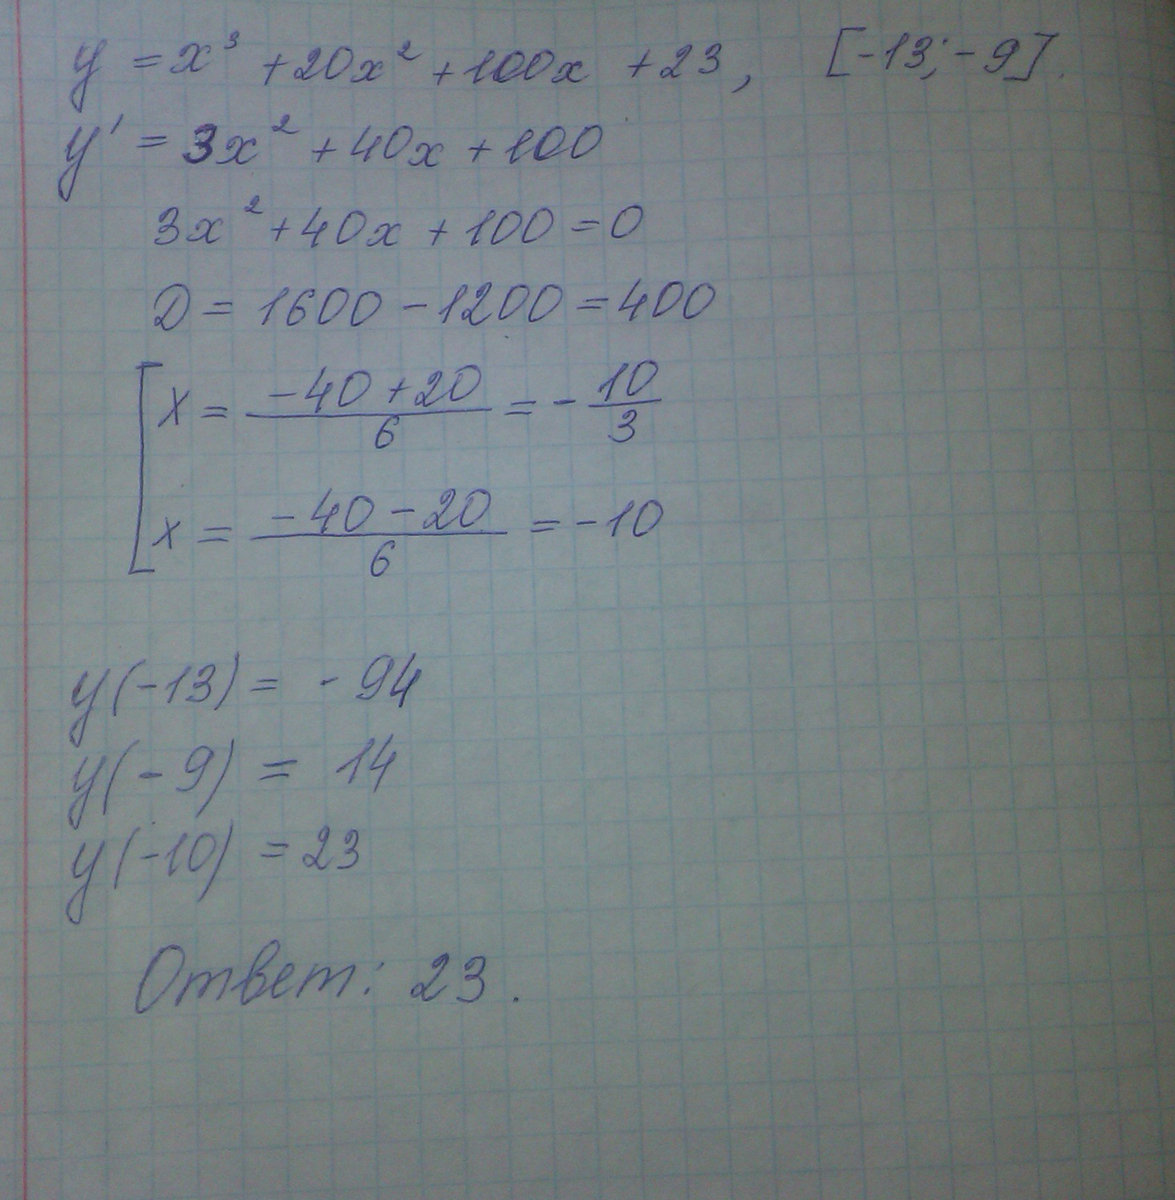 y = x³ + 20x² + 100x + 23, [-13; -9].
y' = 3x² + 40x + 100
3x² + 40x + 100 = 0
D = 1600 - 1200 = 400
[ x = (-40 + 20)/6 = -10/3
x = (-40 - 20)/6 = -10
y(-13) = -94
y(-9) = 14
y(-10) = 23
Ответ: 23.